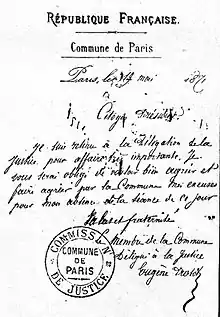 RÉPUBLIQUE FRANÇAISE.
Commune de Paris
Paris, le 14 mai 187
Citoyen Président
Je suis retenu à la Délégation de la
Justice pour affaires importantes. Je
vous serai obligé de vouloir bien
faire agréer par la Commune mes excuses
pour mon absence de la séance de ce jour
Salut et fraternité
Le membre de la Commune
Délégué à la Justice
Eugène Protot
COMMISSION DE JUSTICE
COMMUNE
DE
PARIS